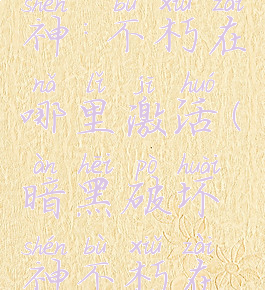 shén bù xiǔ zài
神 不朽在
nǎ lǐ jī huó
哪里激活(
àn hēi pò huài
暗黑破坏
shén bù xiǔ zài
神不朽在